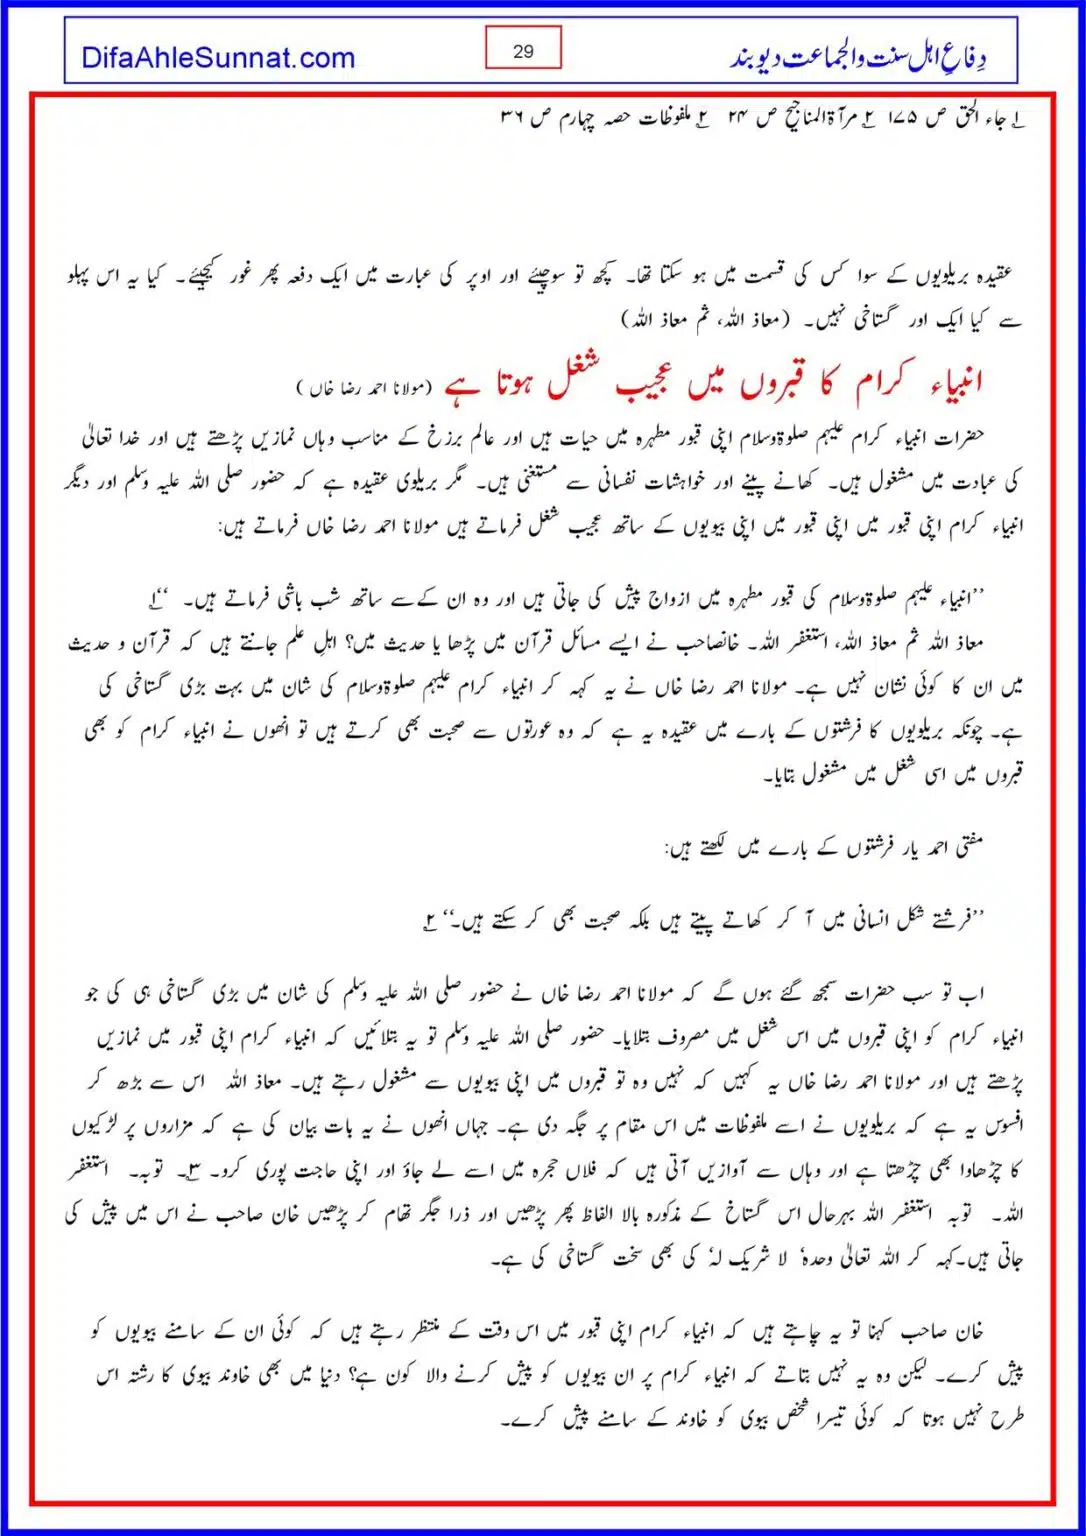 دِفاعِ اہل سنت والجماعت دیوبند
29
DifaAhleSunnat.com
۱؎ جاء الحق ص ۱۷۵ ۲؎ مرآۃ المناجیح ص ۲۴ ۲؎ ملفوظات حصہ چہارم ص ۳۶
عقیدہ بریلویوں کے سوا کس کی قسمت میں ہو سکتا تھا۔ کچھ تو سوچیئے اور اوپر کی عبارت میں ایک دفعہ پھر غور کیجیئے۔ کیا یہ اس پہلو
سے کیا ایک اور گستاخی نہیں۔ (معاذ اللہ، ثم معاذ اللہ)
انبیاء کرام کا قبروں میں عجیب شغل ہوتا ہے (مولانا احمد رضا خاں )
حضرات انبیاء کرام علیہم صلوۃوسلام اپنی قبور مطہرہ میں حیات ہیں اور عالم برزخ کے مناسب وہاں نمازیں پڑھتے ہیں اور خدا تعالیٰ
کی عبادت میں مشغول ہیں۔ کھانے پینے اور خواہشات نفسانی سے مستغنی ہیں۔ مگر بریلوی عقیدہ ہے کہ حضور صلی اللہ علیہ وسلم اور دیگر
انبیاء کرام اپنی قبور میں اپنی قبور میں اپنی بیویوں کے ساتھ عجیب شغل فرماتے ہیں مولانا احمد رضا خاں فرماتے ہیں:
’’انبیاء علیہم صلوۃوسلام کی قبور مطہرہ میں ازواج پیش کی جاتی ہیں اور وہ ان کےسے ساتھ شب باشی فرماتے ہیں۔ ‘‘۱؎
معاذ اللہ ثم معاذ اللہ، استغفر اللہ۔ خانصاحب نے ایسے مسائل قرآن میں پڑھا یا حدیث میں؟ اہلِ علم جانتے ہیں کہ قرآن و حدیث
میں ان کا کوئی نشان نہیں ہے۔ مولانا احمد رضا خاں نے یہ کہہ کر انبیاء کرام علیہم صلوۃوسلام کی شان میں بہت بڑی گستاخی کی
ہے۔ چونکہ بریلویوں کا فرشتوں کے بارے میں عقیدہ یہ ہے کہ وہ عورتوں سے صحبت بھی کرتے ہیں تو انھوں نے انبیاء کرام کو بھی
قبروں میں اسی شغل میں مشغول بتایا۔
مفتی احمد یار فرشتوں کے بارے میں لکھتے ہیں:
’’فرشتے شکل انسانی میں آ کر کھاتے پیتے ہیں بلکہ صحبت بھی کر سکتے ہیں۔‘‘ ۲؎
اب تو سب حضرات سمجھ گئے ہوں گے کہ مولانا احمد رضا خاں نے حضور صلی اللہ علیہ وسلم کی شان میں بڑی گستاخی ہی کی جو
انبیاء کرام کو اپنی قبروں میں اس شغل میں مصروف بتلایا۔ حضور صلی اللہ علیہ وسلم تو یہ بتلائیں کہ انبیاء کرام اپنی قبور میں نمازیں
پڑھتے ہیں اور مولانا احمد رضا خاں یہ کہیں کہ نہیں وہ تو قبروں میں اپنی بیویوں سے مشغول رہتے ہیں۔ معاذ اللہ اس سے بڑھ کر
افسوس یہ ہے کہ بریلویوں نے اسے ملفوظات میں اس مقام پر جگہ دی ہے۔ جہاں انھوں نے یہ بات بیان کی ہے کہ مزاروں پر لڑکیوں
کا چڑھاوا بھی چڑھتا ہے اور وہاں سے آوازیں آتی ہیں کہ فلاں حجرہ میں اسے لے جاؤ اور اپنی حاجت پوری کرو۔ ۳؎۔ توبہ۔ استغفر
اللہ۔ توبہ استغفر اللہ بہرحال اس گستاخ کے مذکورہ بالا الفاظ پھر پڑھیں اور ذرا جگر تھام کر پڑھیں خان صاحب نے اس میں پیش کی
جاتی ہیں۔کہہ کر اللہ تعالیٰ وحدہٗ لا شریک لہٗ کی بھی سخت گستاخی کی ہے۔
خان صاحب کہنا تو یہ چاہتے ہیں کہ انبیاء کرام اپنی قبور میں اس وقت کے منتظر رہتے ہیں کہ کوئی ان کے سامنے بیویوں کو
پیش کرے۔ لیکن وہ یہ نہیں بتاتے کہ انبیاء کرام پر ان بیویوں کو پیش کرنے والا کون ہے؟ دنیا میں بھی خاوند بیوی کا رشتہ اس
طرح نہیں ہوتا کہ کوئی تیسرا شخص بیوی کو خاوند کے سامنے پیش کرے۔